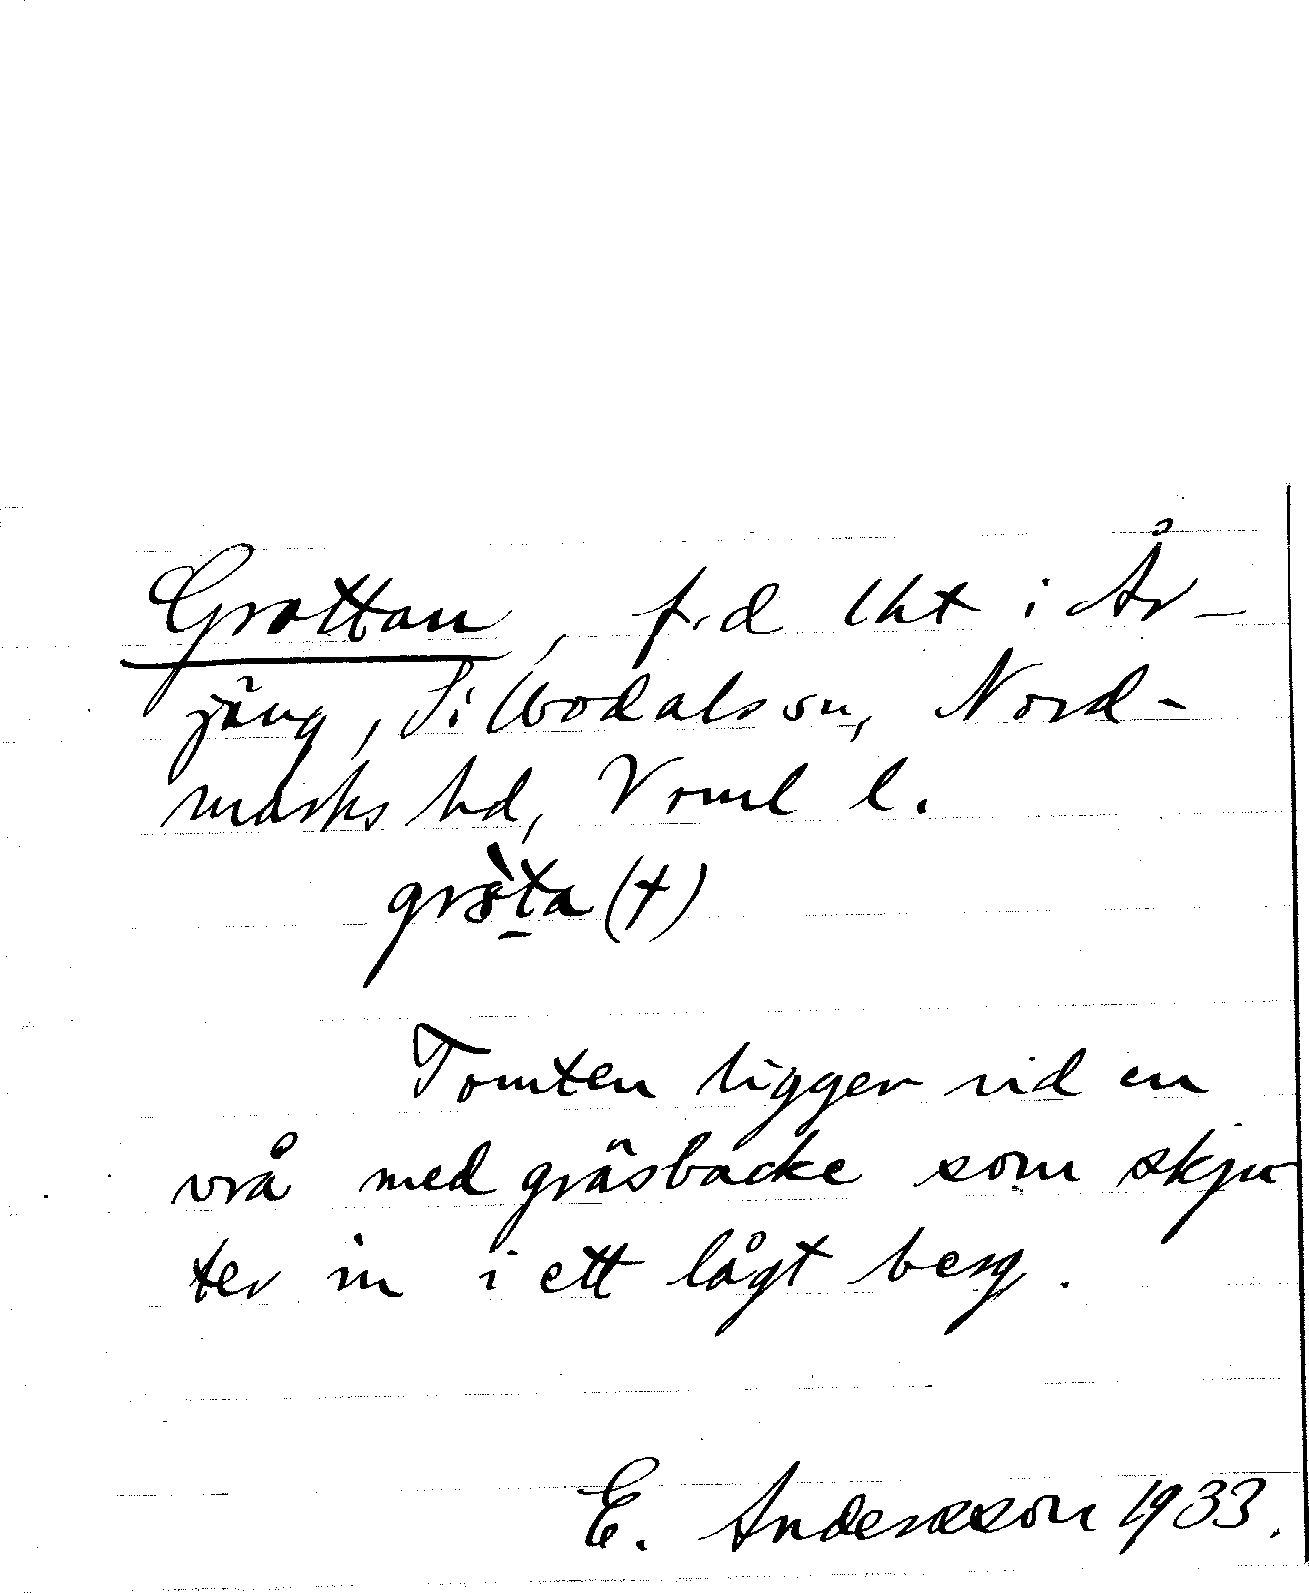 Grottan, f.d lht i År-
jäng, Silbodals sn, Nord-
marks hd, Vrml l.
grò̀ta (+)
Tomten ligger vid en
vrå med gräsbacke som skju
ter in i ett lågt berg.
E. Andersson 1933.